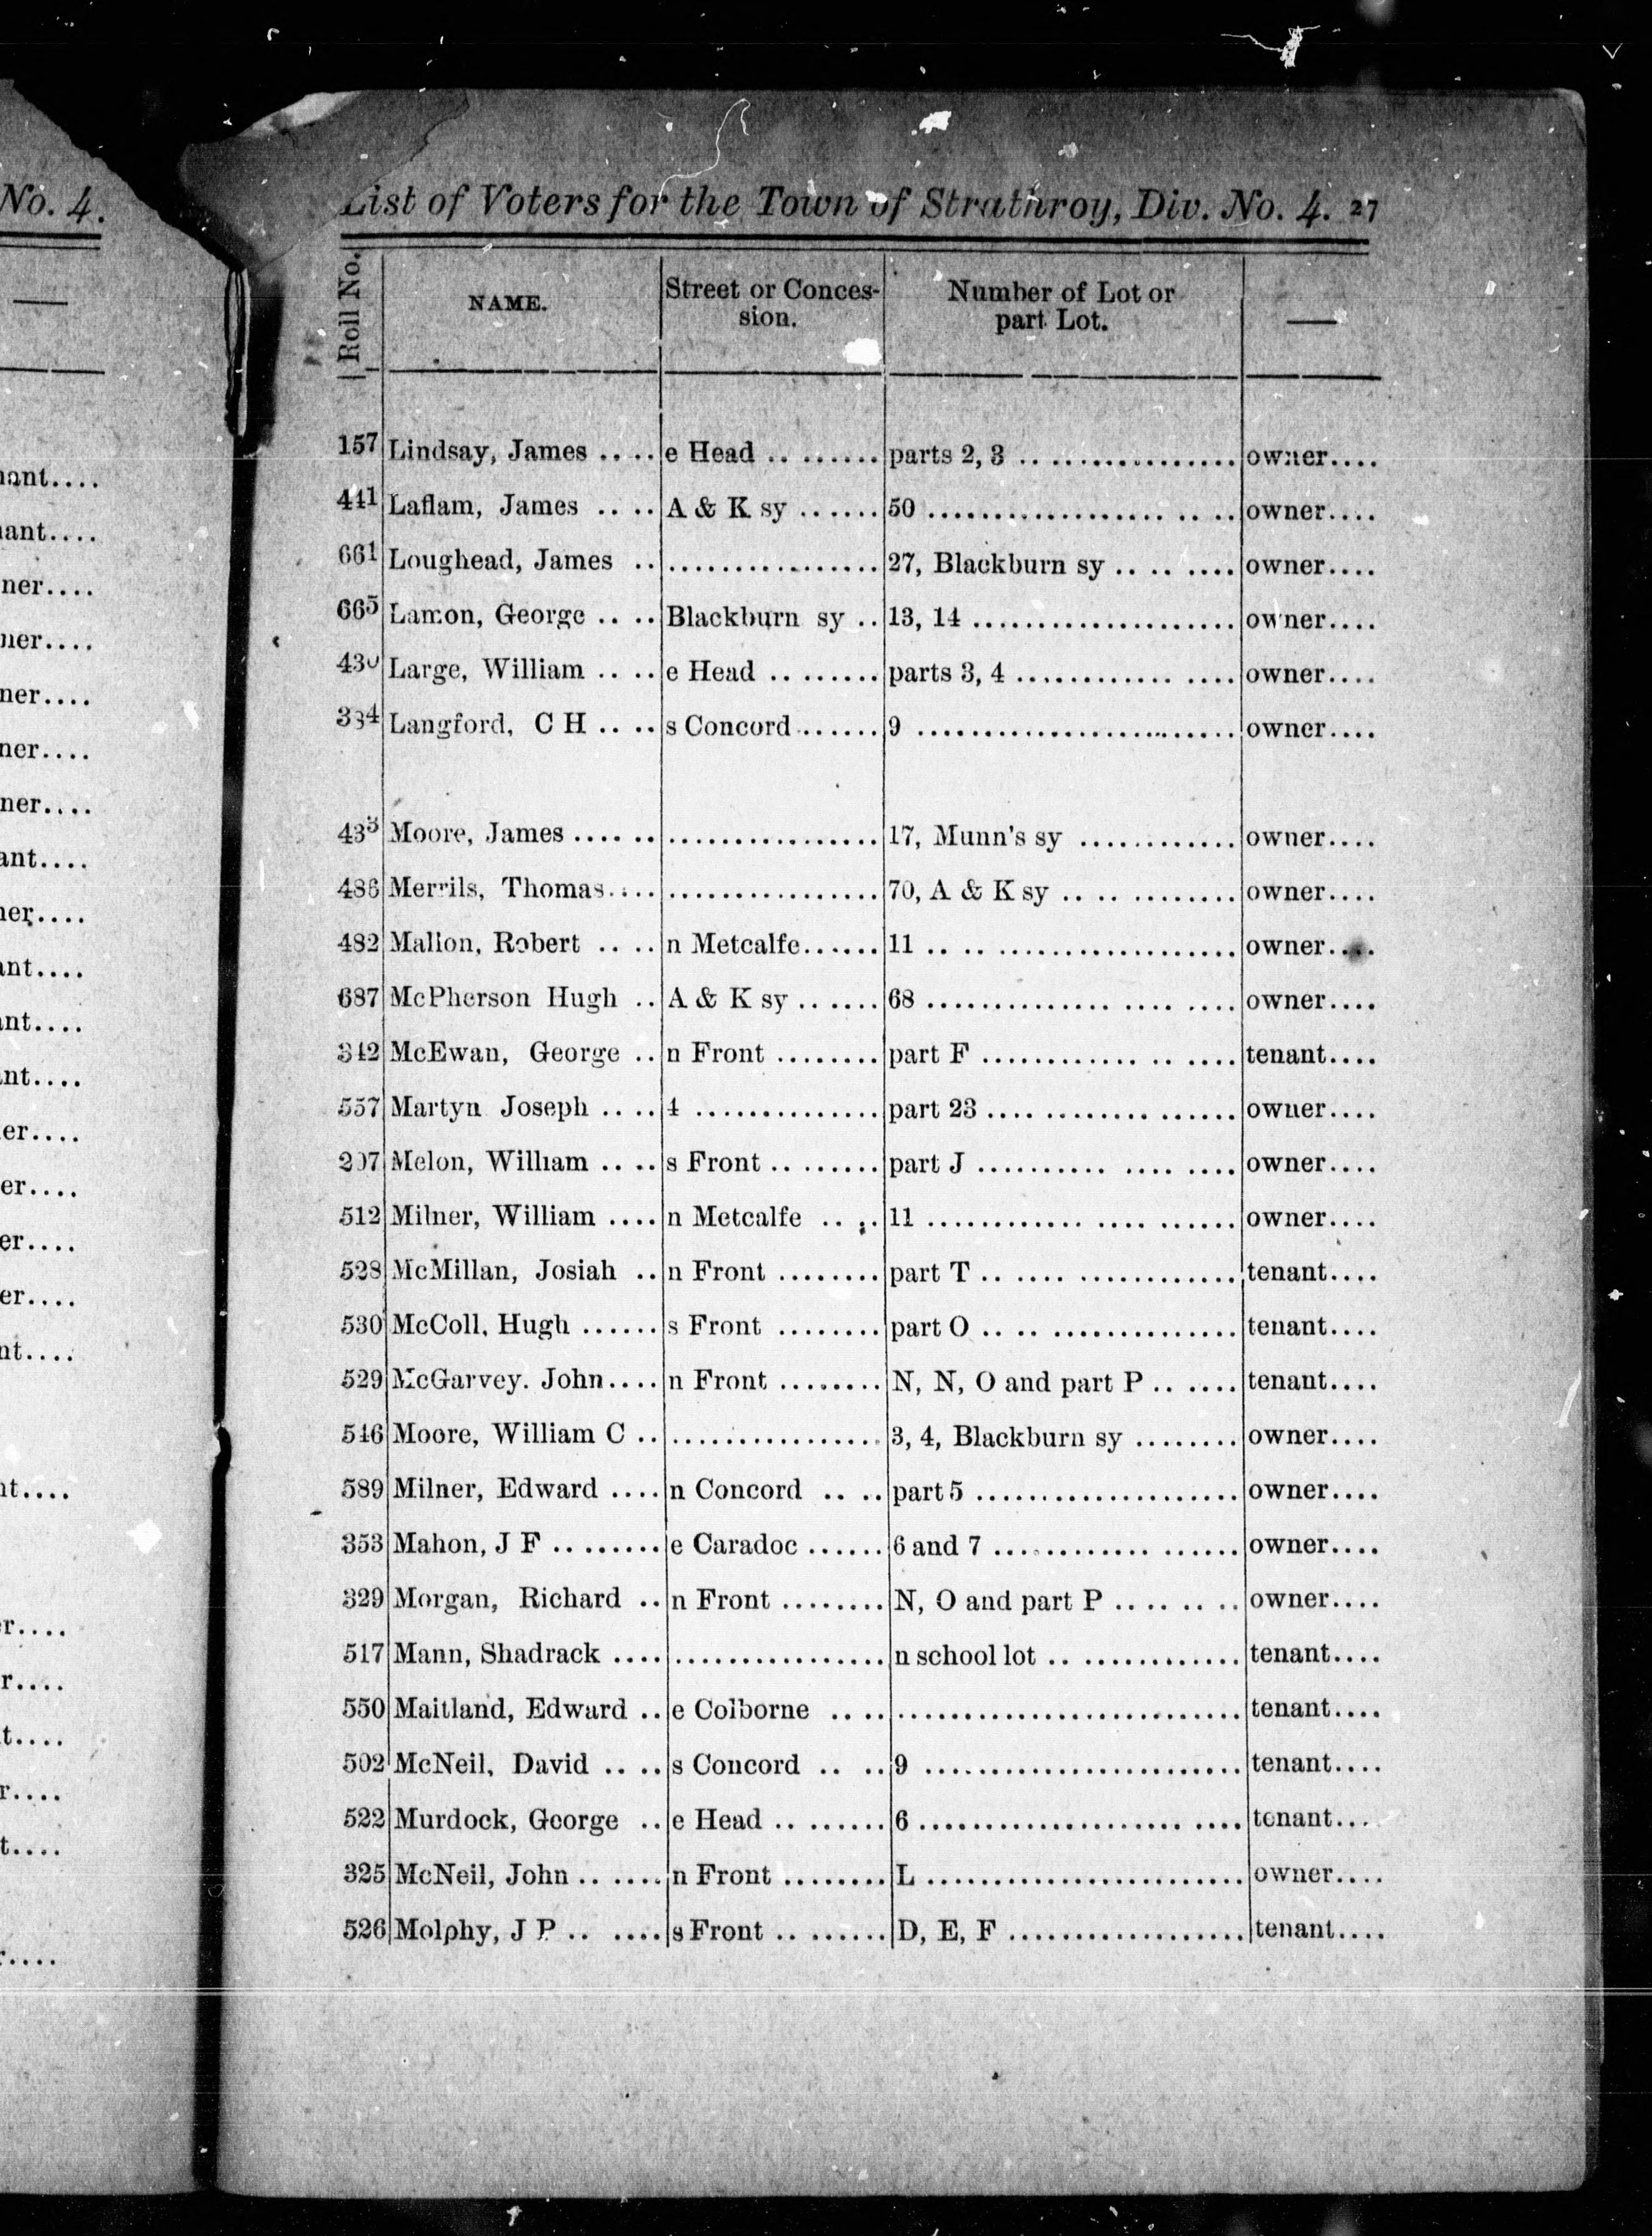 No. 4.
List of Voters for the Town of Strathroy, Div. No. 4. 27
Roll No. NAME. Street or Conces-sion. Number of Lot or part Lot. —
157 Lindsay, James .... e Head .. ....... parts 2, 3 .. ................ owner....
441 Laflam, James .. .. A & K sy ...... 50 .................. .. .. owner....
661 Loughead, James .. ................ 27, Blackburn sy .. .. .... owner....
665 Lamon, George .. .. Blackburn sy .. 13, 14 .................... owner....
430 Large, William .. .. e Head .. ...... parts 3, 4 ............ .... owner....
334 Langford, C H .. .. s Concord ...... 9 ........................ owner....
433 Moore, James .... .. ................ 17, Munn's sy ............ owner....
486 Merrils, Thomas.... ................ 70, A & K sy .. .. ........ owner....
482 Mallon, Robert .. .. n Metcalfe...... 11 .. .. .................. owner....
687 McPherson Hugh .. A & K sy ...... 68 .............. .... .... owner....
342 McEwan, George .. n Front ........ part F ............ .. .... tenant....
557 Martyn Joseph .... 4 .............. part 23 .... .......... ...... owner....
Melon, William .. .. s Front .. ...... part J .......... .... .... owner....
512 Milner, William .... n Metcalfe .. .. 11 ............ .... ...... owner....
528 McMillan, Josiah .. n Front ........ part T .. .... ............ tenant....
530 McColl, Hugh ...... s Front ........ part O .. .. .............. tenant....
529 McGarvey. John.... n Front ........ N, N, O and part P .. .... tenant....
546 Moore, William C .. ................ 3, 4, Blackburn sy ........ owner....
589 Milner, Edward .... n Concord .. .. part 5 .................... owner....
353 Mahon, J F .. ...... e Caradoc ...... 6 and 7 ............ ...... owner....
329 Morgan, Richard .. n Front ........ N, O and part P .... .. .. owner....
517 Mann, Shadrack .... ................ n school lot .. ............ tenant....
550 Maitland, Edward .. e Colborne .. .. .......................... tenant....
502 McNeil, David .. .. s Concord .. .. 9 ........................ tenant....
522 Murdock, George .. e Head .. ...... 6 .................... .... tenant....
325 McNeil, John .. .... n Front ........ L ........................ owner....
526 Molphy, J P .. .... s Front .. ...... D, E, F .................. tenant....